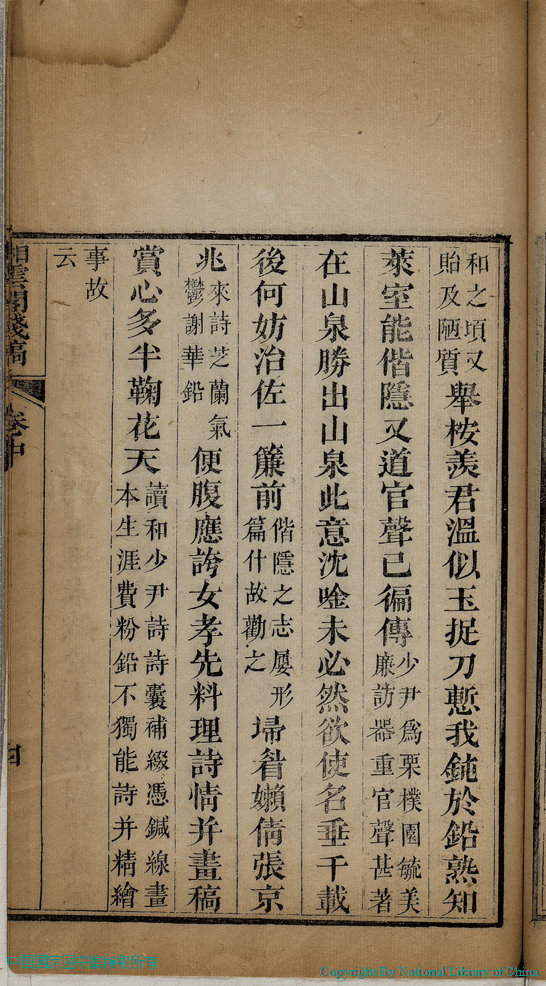 和之頃又
貽及陋質
舉桉羨君溫似玉捉刀慙我鈍於鉛熟知
萊室能偕隱又道官聲已徧傳
少尹爲栗樸園毓美
廉訪器重官聲甚著
在山泉勝出山泉此意沈唫未必然欲使名垂千載
後何妨治佐一簾前
偕隱之志屢形
篇什故勸之
埽眉嬾倩張京
兆
來詩芝蘭氣
鬱謝華鉛
便腹應誇女孝先料理詩情并畫稿
賞心多半鞠花天
讀和少尹詩詩囊補綴憑鍼線畫
本生涯費粉鉛不獨能詩并精繪
事故
云
雲閣稿
卷中
四
Copyright By National Library of China